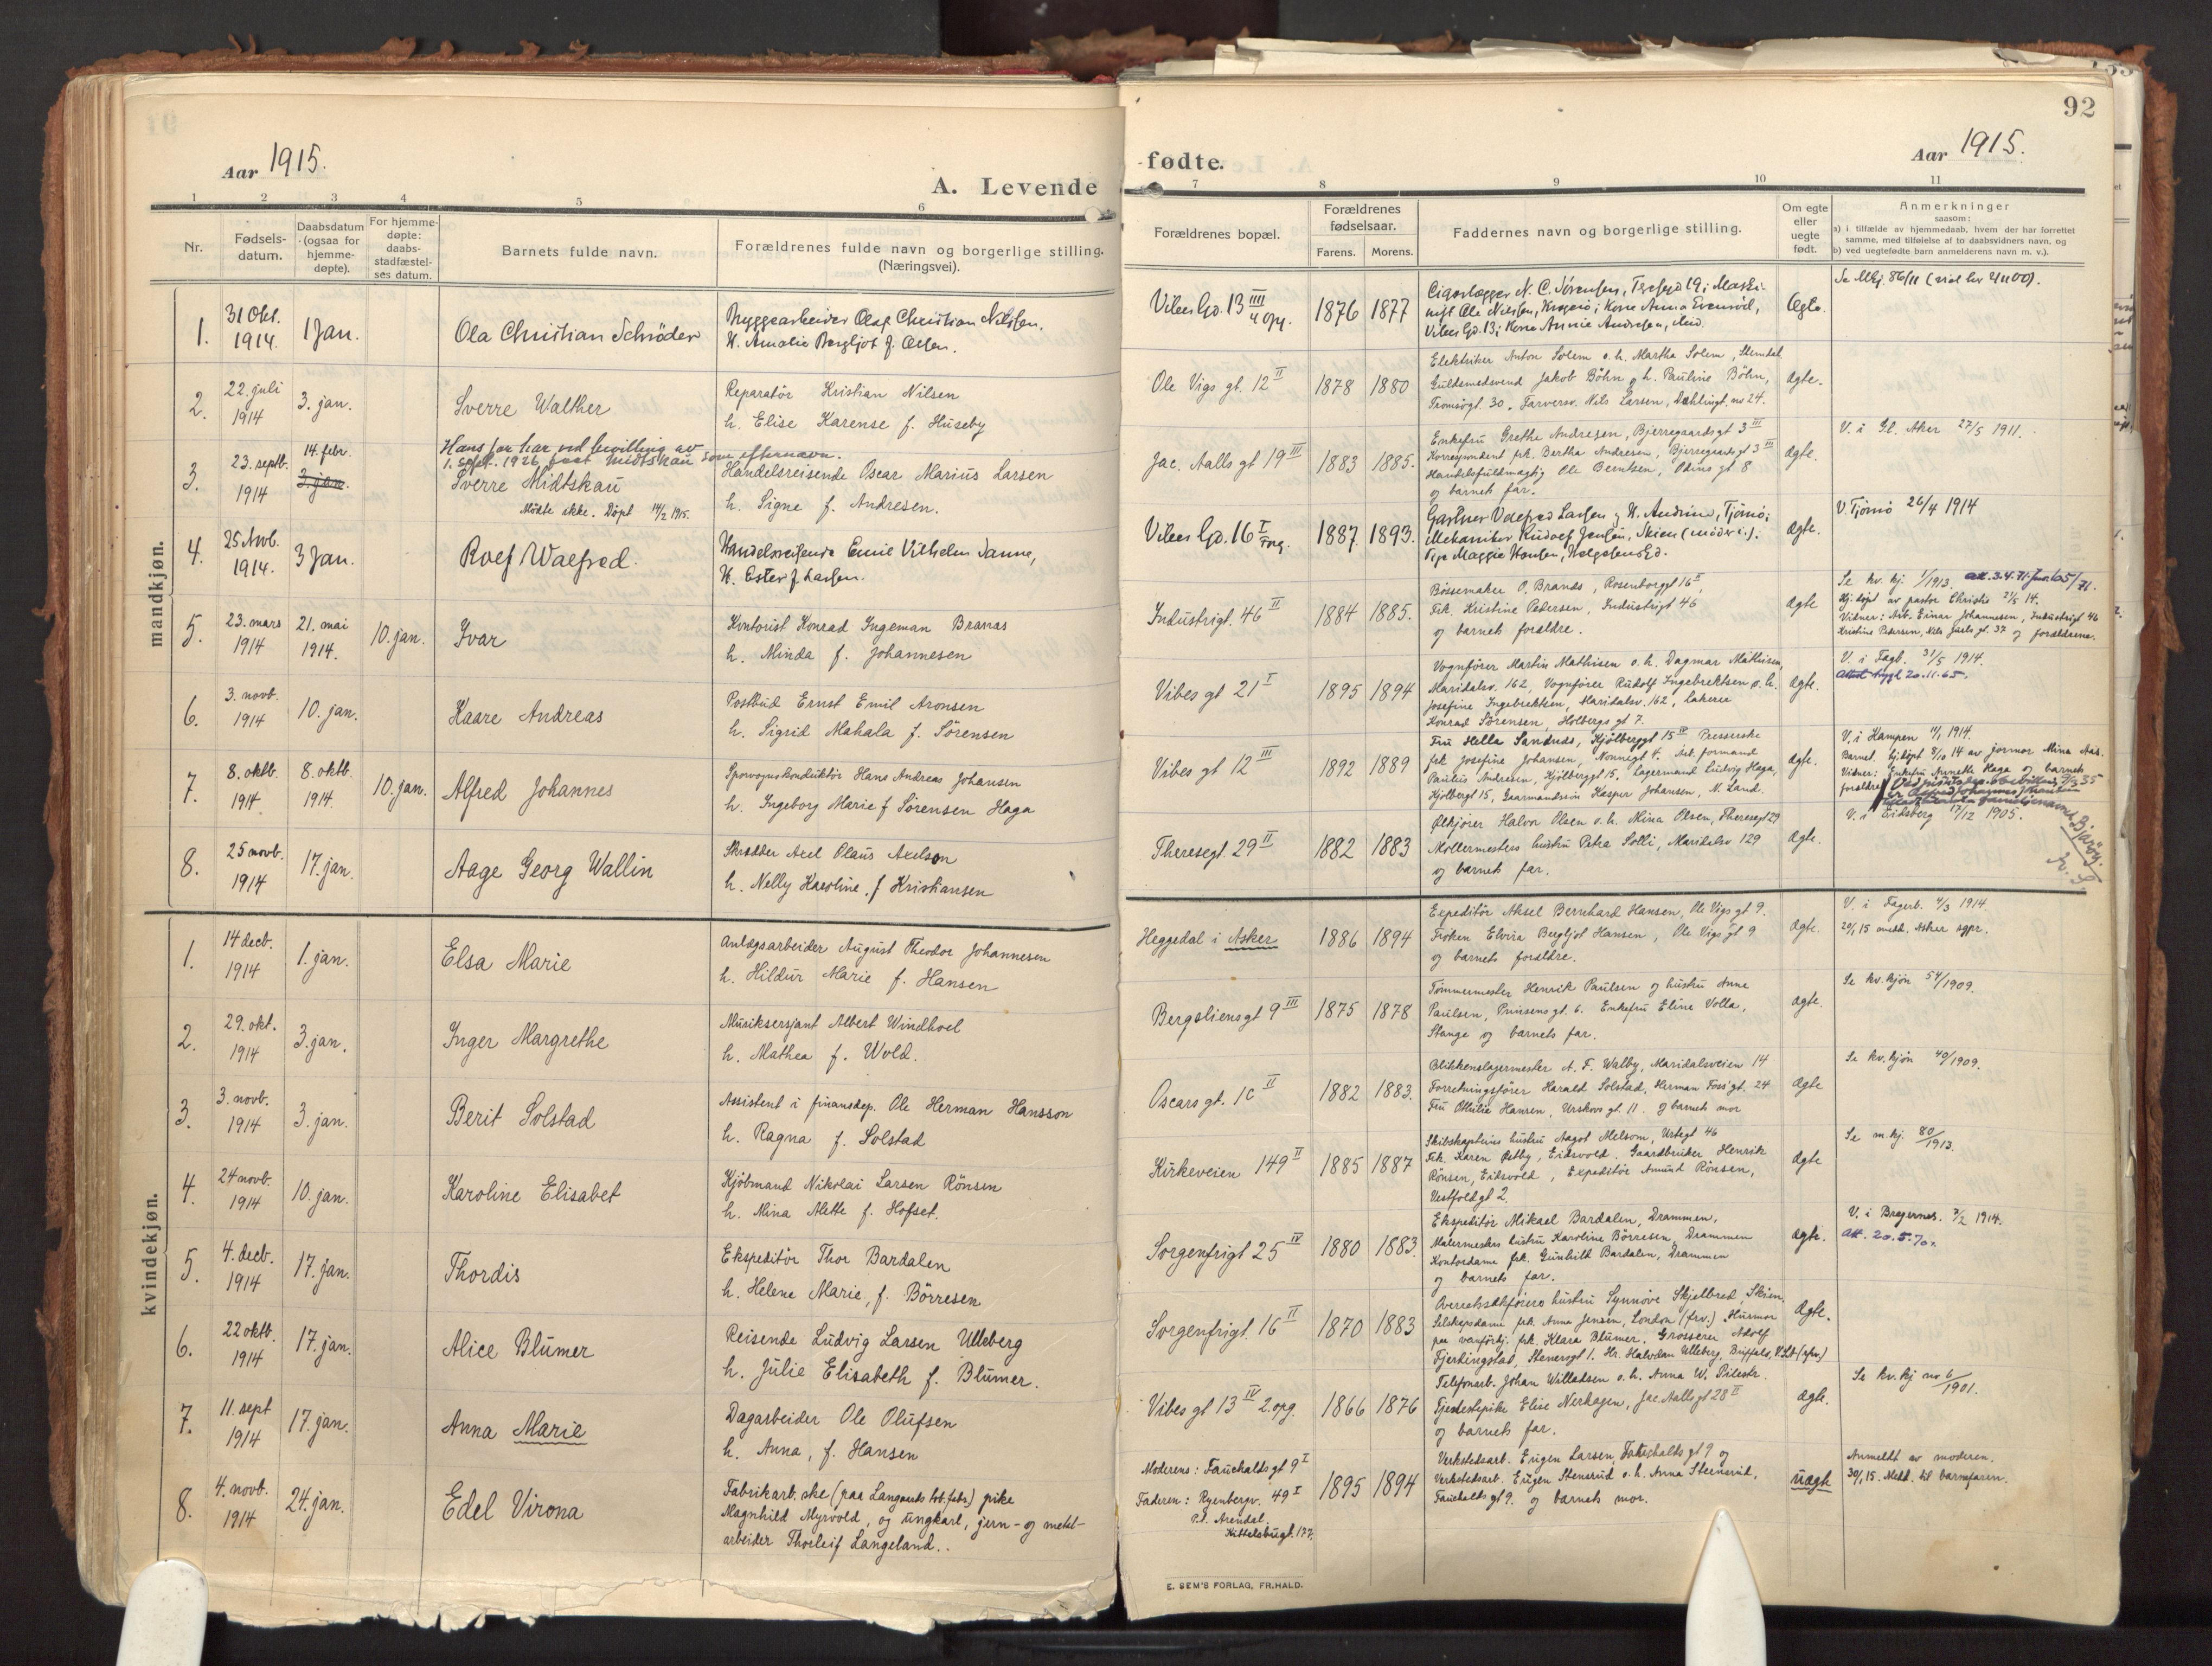 92
Aar 1915.
A. Levende
1 2 3 4 5 6
Nr.
Fødsels-
datum.
Daabsdatum
(ogsaa for
hjemme-
døpte).
For hjemme-
døpte:
daabs-
stadfæstel-
ses datum.
Barnets fulde navn.
Forældrenes fulde navn og borgerlige stilling.
(Næringsvei).
mandkjøn.
1.
31 Okt.
1914.
1 Jan.
Ola Christian Schrøder
Bryggearbeider Olaf Christian Nilssen.
H. Amalie Bergljot f. Olsen.
2.
22. juli
1914
3. jan.
Sverre Walther
Reparatör Kristian Nilsen
h. Elise Karense f. Huseby
3.
23. septb.
1914
14. febr.
3. jan.
Hans far har ved bevilling av
1. sept. 1926 faat Midtskau som efternavn.
Sverre Midtskau
Mødte ikke. Døpt 14/2 1915.
Handelsreisende Oscar Marius Larsen
h. Signe f. Andresen.
4.
25 Novb.
1914.
3 Jan.
Rolf Walfred.
Handelsreisende Emil Vilhelm Sanne,
H. Ester f. Larsen.
5.
23. mars
1914
21. mai
1914.
10. jan.
Ivar
Kontorist Konrad Ingeman Branäs
h. Minda f. Johannesen
6.
3. novb.
1914
10. jan.
Kaare Andreas
Postbud Ernst Emil Aronsen
h. Sigrid Mahala f. Sörensen
7.
8. oktb.
1914
8. oktb.
1914.
10. jan.
Alfred Johannes
Sporvognskonduktör Hans Andreas Johansen
h. Ingeborg Marie f Sörensen Haga
8.
25 novb.
1914
17. jan.
Aage Georg Wallin
Skrædder Axel Olaus Axelson
h. Nelly Karoline f Kristiansen
kvindekjøn.
1.
14 decb.
1914
1. jan.
Elsa Marie
Anlægsarbeider August Theodor Johannesen
h. Hildur Marie f. Hansen
2.
29. okt.
1914
3. jan.
Inger Margrethe
Musiksersjant Albert Windhoel
h. Mathea f. Wold.
3.
3. novb.
1914
3. jan.
Berit Solstad
Assistent i finansdep. Ole Herman Hansson
h. Ragna f. Solstad
4.
24 novb.
1914
10. jan.
Karoline Elisabet
Kjöbmand Nikolai Larsen Rönsen
h. Mina Alette f. Hofset.
5.
4. decb.
1914
17. jan.
Thordis
Ekspeditör Thor Bardalen
h. Helene Marie, f. Börresen
6.
22 oktb.
1914
17. jan.
Alice Blümer
Reisende Ludvig Larsen Ulleberg
h. Julie Elisabeth f. Blümer.
7.
11. sept
1914
17. jan.
Anna Marie
Dagarbeider Ole Olufsen
h. Anna, f. Hansen
8.
4. novb.
1914
24. jan.
Edel Virona
Fabrikarb.ske (paa Langaards tob.fabr.) pike
Magnhild Myrvold, og ungkarl, jern- og metal-
arbeider Thorleif Langeland.
fødte.
Aar 1915.
7 8 9 10 11
Forældrenes bopæl.
Forældrenes
fødselsaar.
Farens. Morens.
Faddernes navn og borgerlige stilling.
Om egte
eller
uegte
født.
Anmerkninger
saasom:
a) i tilfælde av hjemmedaab, hvem der har forrettet
samme, med tilføielse af to daabsvidners navn, og
b) ved uegtefødte barn anmelderens navn m. v.).
Vibes Gd. 13 IIII
4 opg.
1876 1877
Cigarlægger N. C. Sörensen, Tresegd 19; Maski-
nist Ole Nilsen, Kragerö; Kone Anna Evensröd,
Vibes Gd. 13; Kone Annie Andresen, ibid.
Ægte.
Se Mkj. 86/11
Ole Vigs gt. 12 II
1878 1880
Elektriker Anton Solem o. h. Martha Solem, Stendal
Guldsmedsvend Jakob Böhn og h. Pauline Böhn,
Tromsögt. 30. Farversv. Nils Larsen, Dæhlingt. no 24.
Ægte.
Jac. Aalls gt 19 III
1883 1885.
Enkefru Grethe Andresen, Bjerregaards gt 3 III
Korrespondent frk. Bertha Andresen, Bjerregaards gt 3 III
Handelsfuldmægtig Ole Berntsen, Odins gt 8
og barnets far.
Ægte.
V. i Gl. Aker 27/5 1911.
Vibes Gd. 16 I
1887 1893.
Gartner Valfred Larsen og H. Andrine, Tjömö;
Mekaniker Rudolf Jensen, Skien
Pige Maggie Hansen, Helgesens Gd.
Ægte.
V. Tjömö 26/4 1914
Industrigt. 46 II
1884 1885.
Bössemaker O. Branäs, Rosenborggt 16 I,
Frk. Kristine Pedersen, Industrigt 46
og barnets forældre.
Ægte
Se kv. kj. 1/1913. att. 3.4.71
Hj.döpt av pastor Christie 21/5 14.
Vidner: Arb. Einar Johannesen, Industrigt 46
Kristine Pedersen, Nils Juels gt. 37 og forældrene.
Vibes gt 21 I
1895 1894
Vognfører Martin Mathisen o. h. Dagmar Mathisen,
Maridalsv. 162, Vognfører Rudolf Ingebrektsen o. h.
Josefine Ingebrektsen, Maridalsv. 162, Lakerer
Konrad Sörensen, Holbergs gt 7.
Ægte.
V. i Fagb. 31/5 1914.
20.11.65.
Vibes gt 12 III
1892 1889
Fru Hella Sandnäs, Kjölberggt 15 IV Presserske
frk. Josefine Johansen, Nonnegt 4. Arb. formand
Paulus Andresen, Kjölberggt 15, Lagermand Ludvig Haga,
Kjölbergt 15, Gaarmandssön Kasper Johansen, N. Land.
Ægte.
V. i Kampen 11/1 1914.
Barnet hj.döpt 8/10 14 av jormor Mina Aas.
Vidner: Enkefru Annette Haga og barnets
forældre
Bjaröy.
Theresegt. 29 II
1882 1883
Ølkjører Halvor Olsen o. h. Mina Olsen, Theresegt 29
Møllermesters hustru Petra Solli, Maridalsv 129
og barnets far.
Ægte.
V. i Eidsberg 17/12 1905.
Heggedal i Asker
1886 1894
Expeditör Aksel Bernhard Hansen, Ole Vigs gt 9.
Fröken Elvira Bergljot Hansen, Ole Vigs gt 9
og barnets forældre.
Ægte.
V. i Fagerb. 4/3 1914.
29/1 15 medd. Asker sgpr.
Bergsliensgt 9 III
1875 1878
Tømmermester Henrik Paulsen og hustru Anne
Paulsen, Prinsens gt. 6. Enkefru Eline Volla,
Stange og barnets far.
Ægte.
Se kv. kjön 54/1909.
Oscars gt. 10 II
1882 1883.
Blikkenslagermester A. F. Walby, Maridalsveien 14
Forretningsfører Harald Solstad, Herman Fossgt. 24
Fru Othilie Hansen, Urskovs gt. 11. og barnets mor
Ægte
Se kv. kjön 40/1909.
Kirkeveien 149 II
1885 1887
Skibskapteins hustru Aagot Melsom, Urtegt 46
Frk. Karen Østby, Eidsvold. Gaardbruker Henrik
Rönsen, Eidsvold, Expeditör Amund Rönsen,
Vestfoldgt 2.
Ægte
Se m. kj. 80/1913.
Sorgenfrigt 25 IV
1880 1883.
Ekspeditör Mikael Bardalen, Drammen,
Malermesters hustru Karoline Börresen, Drammen
Kontordame frk. Gunhild Bardalen, Drammen
og barnets far.
Ægte.
V. i Bragernes. 7/2 1914.
Att. 20.5.70.
Sorgenfrigt. 16 II
1870 1883
Overretssakførers hustru Synnöve Skjelbred, Skien,
Selskapsdame frk. Anna Jensen, London (frv.) Husmor
paa vanförhj. frk. Klara Blümer. Grosserer Adolf
Fjerdingstad, Stenersgt 1. Hr. Halvdan Ulleberg, Buffalo,
Ægte.
Vibes gt 13 IV 2. opg.
1866 1876
Telefonarb. Johan Willadsen o. h. Anna W. Pilestr.
Tjenestepike Elise Nerhagen, Jac. Aalls gt 28 II
og barnets far.
Ægte.
Se kv. kj no 6/1901.
Moderens: Fauchalds gt 9 I
Faderen: Ryenbergv. 49 I
p.t. Arendal.
Kittelsbugt. 177.
1895 1894
Verkstedsarb. Eugen Larsen Fauchalds gt 9 og
Verkstedsarb. Eugen Stensrud o. h. Anna Stensrud,
Fauchalds gt 9. og barnets mor.
Uægte
Anmeldt av moderen.
30/1 15. Medd. til barnefaren.
E. SEM'S FORLAG, FR.HALD.